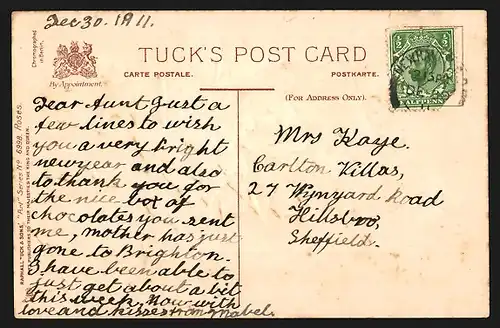 Dec 30. 1911.
Chromographed
in Berlin.
By Appointment.
TUCK'S POST CARD
CARTE POSTALE.
POSTKARTE.
(FOR ADDRESS ONLY).
RAPHAEL TUCK & SONS' "Art" Series No 6988. Roses.
Dear Aunt Just a
few lines to wish
you a very bright
new year and also
to thank you for
the nice box of
chocolates you sent
me, mother has just
gone to Brighton.
I have been able to
just get about a bit
this week, Now with
love and kisses from Mabel.
Mrs Kaye.
Carlton Villas,
27 Wynyard Road
Hillsbro,
Sheffield.